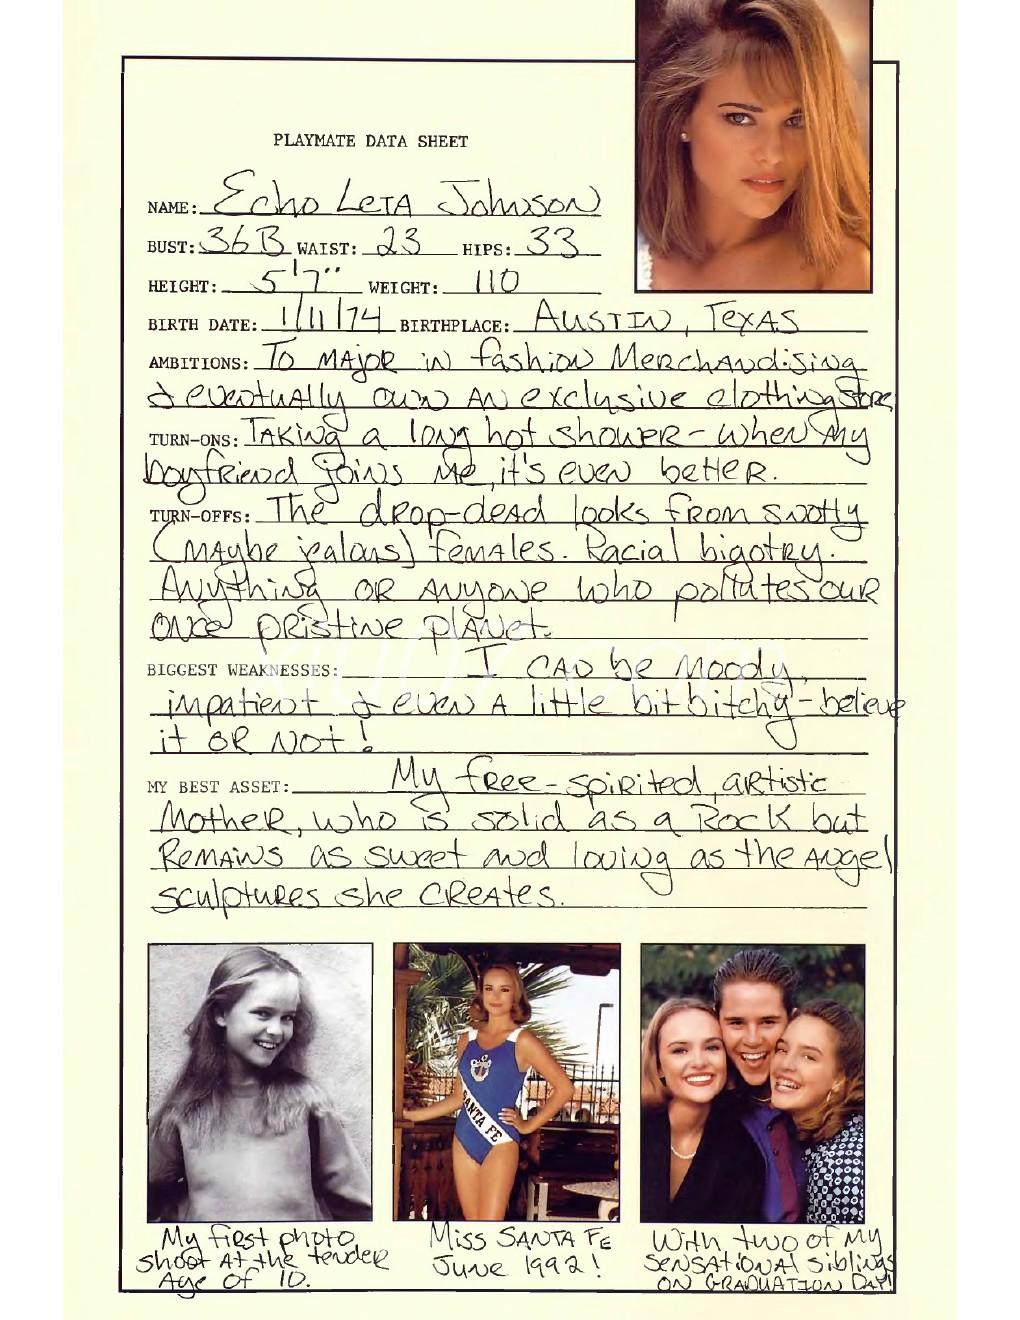 PLAYMATE DATA SHEET
NAME: Echo Leta Johnson
BUST: 36B WAIST: 23 HIPS: 33
HEIGHT: 5'7" WEIGHT: 110
BIRTH DATE: 1/11/74 BIRTHPLACE: Austin, Texas
AMBITIONS: To major in fashion Merchandising
& eventually own an exclusive clothing store
TURN-ONS: Taking a long hot shower - when my
boyfriend joins me, it's even better.
TURN-OFFS: The drop-dead looks from snotty
(maybe jealous) females. Racial bigotry.
Anything or anyone who pollutes our
once pristine planet.
BIGGEST WEAKNESSES: I can be moody,
impatient & even a little bit bitchy - believe
it or not!
MY BEST ASSET: My free-spirited, artistic
Mother, who is solid as a Rock but
Remains as sweet and loving as the angel
sculptures she creates.
SANTA FE
My first photo
shoot at the tender
age of 10.
Miss Santa Fe
June 1992!
With two of my
sensational siblings
on graduation day!